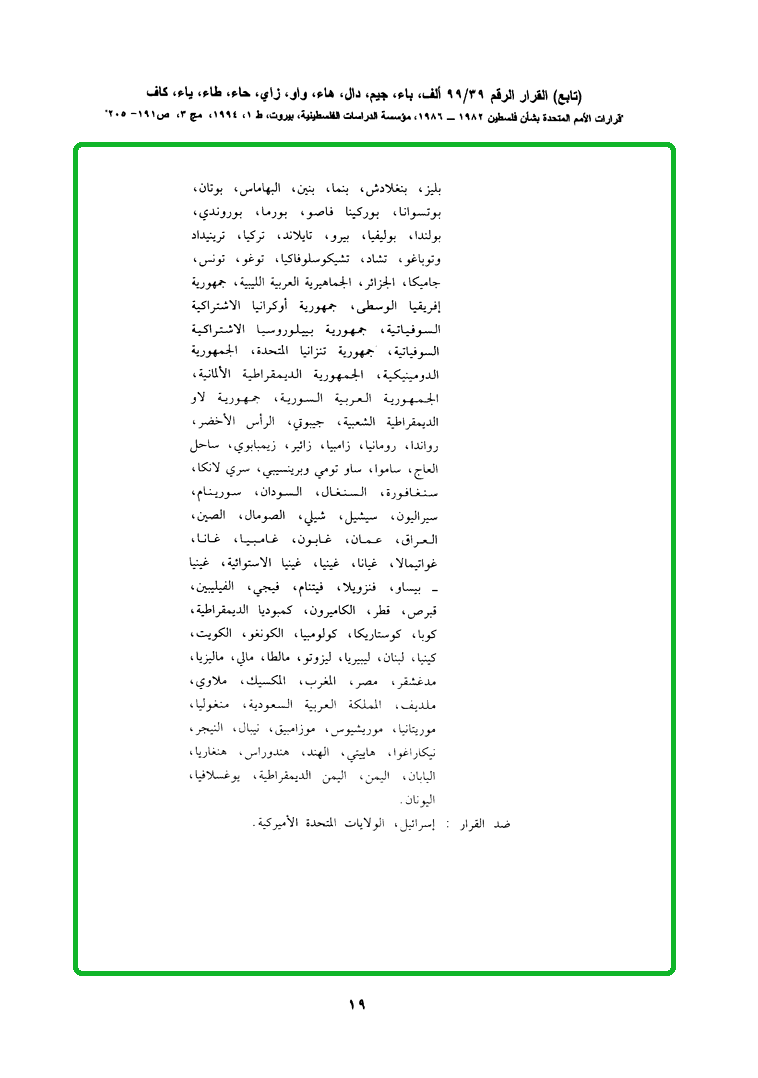 (تابع) القرار الرقم ٩٩/٣٩ ألف، باء، جيم، دال، هاء، واو، زاي، حاء، طاء، ياء، كاف
"قرارات الأمم المتحدة بشأن فلسطين ١٩٨٢ – ١٩٨٦، مؤسسة الدراسات الفلسطينية، بيروت، ط ١، ١٩٩٤، مج ٣، ص١٩١- ٢٠٥"
بليز، بنغلادش، بنما، بنين، البهاماس، بوتان،
بوتسوانا، بوركينا فاصو، بورما، بوروندي،
بولندا، بوليفيا، بيرو، تايلاند، تركيا، ترينيداد
وتوباغو، تشاد، تشيكوسلوفاكيا، توغو، تونس،
جاميكا، الجزائر، الجماهيرية العربية الليبية، جمهورية
إفريقيا الوسطى، جمهورية أوكرانيا الاشتراكية
السوفياتية، جمهورية بييلوروسيا الاشتراكية
السوفياتية، جمهورية تنزانيا المتحدة، الجمهورية
الدومينيكية، الجمهورية الديمقراطية الألمانية،
الجمهورية العربية السورية، جمهورية لاو
الديمقراطية الشعبية، جيبوتي، الرأس الأخضر،
رواندا، رومانيا، زامبيا، زائير، زيمبابوي، ساحل
العاج، ساموا، ساو تومي وبرينسيبي، سري لانكا،
سنغافورة، السنغال، السودان، سورينام،
سيراليون، سيشيل، شيلي، الصومال، الصين،
العراق، عمان، غابون، غامبيا، غانا،
غواتيمالا، غيانا، غينيا، غينيا الاستوائية، غينيا
ـ بيساو، فنزويلا، فيتنام، فيجي، الفيليبين،
قبرص، قطر، الكاميرون، كمبوديا الديمقراطية،
كوبا، كوستاريكا، كولومبيا، الكونغو، الكويت،
كينيا، لبنان، ليبيريا، ليزوتو، مالطا، مالي، ماليزيا،
مدغشقر، مصر، المغرب، المكسيك، ملاوي،
ملديف، المملكة العربية السعودية، منغوليا،
موريتانيا، موريشيوس، موزامبيق، نيبال، النيجر،
نيكاراغوا، هاييتي، الهند، هندوراس، هنغاريا،
اليابان، اليمن، اليمن الديمقراطية، يوغسلافيا،
اليونان.
ضد القرار : إسرائيل، الولايات المتحدة الأميركية.
١٩